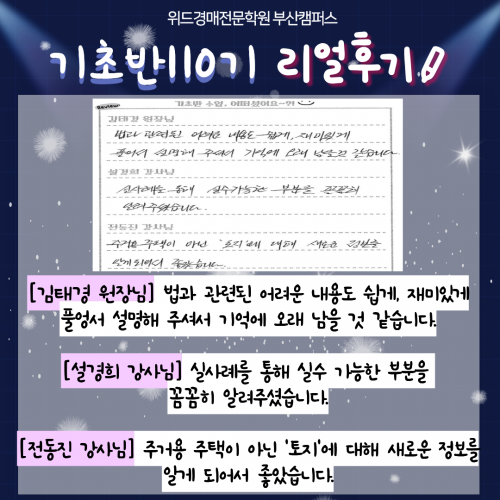 위드경매전문학원 부산캠퍼스
기초반110기 리얼후기
기초반 수업, 어떠셨어요~?!
김태경 원장님
법과 관련된 어려운 내용도 쉽게, 재미있게
풀어서 설명해 주셔서 기억에 오래 남을것 같습니다.
설경희 강사님
실사례를 통해 실수가능한 부분을 꼼꼼히
알려주셨습니다.
전동진 강사님
주거용 주택이 아닌 '토지'에 대해 새로운 정보를
알게 되어서 좋았습니다.
[김태경 원장님] 법과 관련된 어려운 내용도 쉽게, 재미있게
풀엉서 설명해 주셔서 기억에 오래 남을 것 같습니다.
[설경희 강사님] 실사례를 통해 실수 가능한 부분을
꼼꼼히 알려주셨습니다.
[전동진 강사님] 주거용 주택이 아닌 '토지'에 대해 새로운 정보를
알게 되어서 좋았습니다.